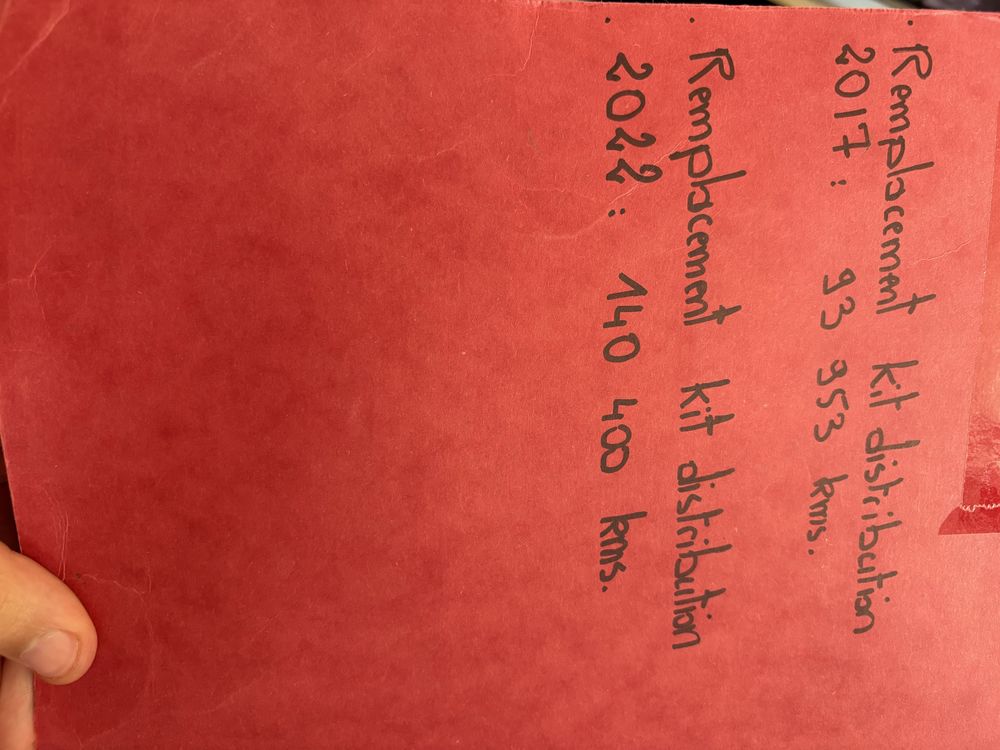 . Remplacement kit distribution
2017 : 93 953 kms.
. Remplacement kit distribution
. 2022 : 140 400 kms.